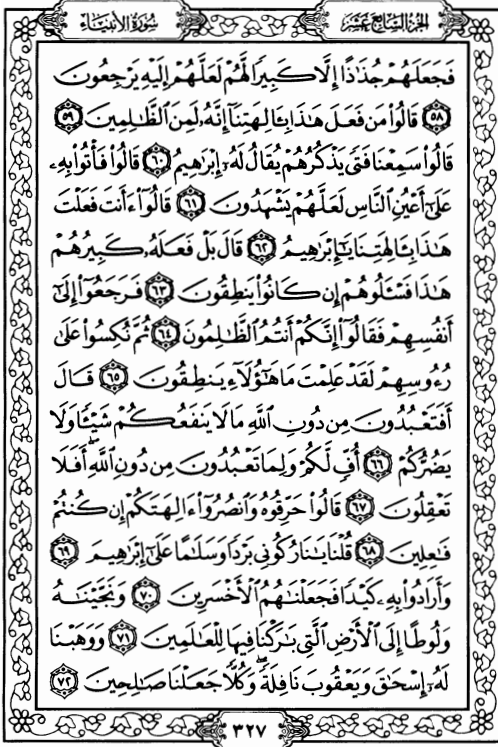 سُورَةُ الأَنبِيَاء
الجُزءُ السَّابِعَ عَشَرَ
فَجَعَلَهُمْ جُذَٰذًا إِلَّا كَبِيرًا لَّهُمْ لَعَلَّهُمْ إِلَيْهِ يَرْجِعُونَ
٥٨ قَالُوا۟ مَن فَعَلَ هَٰذَا بِـَٔالِهَتِنَآ إِنَّهُۥ لَمِنَ ٱلظَّٰلِمِينَ ٥٩
قَالُوا۟ سَمِعْنَا فَتًى يَذْكُرُهُمْ يُقَالُ لَهُۥٓ إِبْرَٰهِيمُ ٦٠ قَالُوا۟ فَأْتُوا۟ بِهِۦ
عَلَىٰٓ أَعْيُنِ ٱلنَّاسِ لَعَلَّهُمْ يَشْهَدُونَ ٦١ قَالُوٓا۟ ءَأَنتَ فَعَلْتَ
هَٰذَا بِـَٔالِهَتِنَا يَٰٓإِبْرَٰهِيمُ ٦٢ قَالَ بَلْ فَعَلَهُۥ كَبِيرُهُمْ
هَٰذَا فَسْـَٔلُوهُمْ إِن كَانُوا۟ يَنطِقُونَ ٦٣ فَرَجَعُوٓا۟ إِلَىٰٓ
أَنفُسِهِمْ فَقَالُوٓا۟ إِنَّكُمْ أَنتُمُ ٱلظَّٰلِمُونَ ٦٤ ثُمَّ نُكِسُوا۟ عَلَىٰ
رُءُوسِهِمْ لَقَدْ عَلِمْتَ مَا هَٰٓؤُلَآءِ يَنطِقُونَ ٦٥ قَالَ
أَفَتَعْبُدُونَ مِن دُونِ ٱللَّهِ مَا لَا يَنفَعُكُمْ شَيْـًٔا وَلَا
يَضُرُّكُمْ ٦٦ أُفٍّ لَّكُمْ وَلِمَا تَعْبُدُونَ مِن دُونِ ٱللَّهِ ۖ أَفَلَا
تَعْقِلُونَ ٦٧ قَالُوا۟ حَرِّقُوهُ وَٱنصُرُوٓا۟ ءَالِهَتَكُمْ إِن كُنتُمْ
فَٰعِلِينَ ٦٨ قُلْنَا يَٰنَارُ كُونِى بَرْدًا وَسَلَٰمًا عَلَىٰٓ إِبْرَٰهِيمَ ٦٩
وَأَرَادُوا۟ بِهِۦ كَيْدًا فَجَعَلْنَٰهُمُ ٱلْأَخْسَرِينَ ٧٠ وَنَجَّيْنَٰهُ
وَلُوطًا إِلَى ٱلْأَرْضِ ٱلَّتِى بَٰرَكْنَا فِيهَا لِلْعَٰلَمِينَ ٧١ وَوَهَبْنَا
لَهُۥٓ إِسْحَٰقَ وَيَعْقُوبَ نَافِلَةً ۖ وَكُلًّا جَعَلْنَا صَٰلِحِينَ ٧٢
٣٢٧